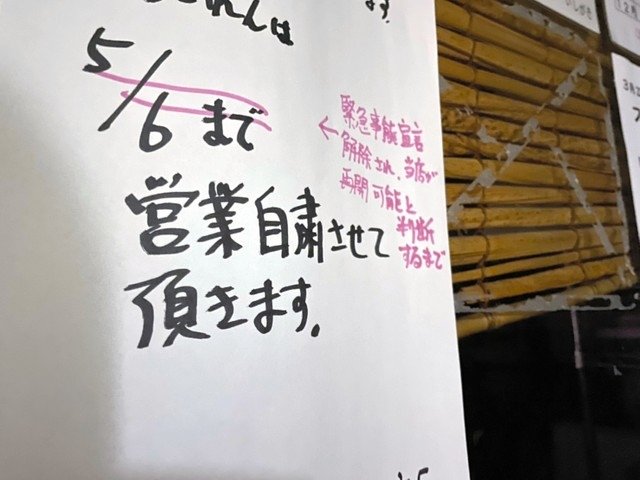 れんは
5/6まで
営業自粛させて
頂きます。
←緊急事態宣言
解除され、当店が
再開可能と
判断
するまで
ます。